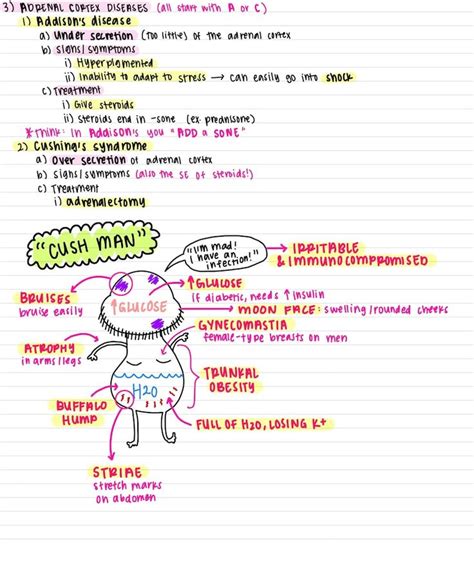 3) ADRENAL CORTEX DISEASES (all start with A or C)
1) Addison's disease
a) under secretion (too little) of the adrenal cortex
b) signs/symptoms
i) Hyperpigmented
ii) Inability to adapt to stress → can easily go into shock
c) Treatment
i) Give steroids
ii) steroids end in -sone (ex. prednisone)
*Think: In Addison's you "ADD a SONE"
2) Cushing's syndrome
a) over secretion of adrenal cortex
b) signs/symptoms (also the SE of steroids!)
c) Treatment
i) adrenalectomy
"CUSH MAN"
"I'm mad! I have an infection!"
→ IRRITABLE
& IMMUNOCOMPROMISED
↑GLUCOSE
If diabetic, needs ↑ insulin
BRUISES
bruise easily
↑GLUCOSE
MOON FACE: swelling/rounded cheeks
GYNECOMASTIA
female-type breasts on men
ATROPHY
in arms/legs
TRUNKAL
OBESITY
H2O
BUFFALO
HUMP
FULL OF H2O, LOSING K+
STRIAE
stretch marks
on abdomen